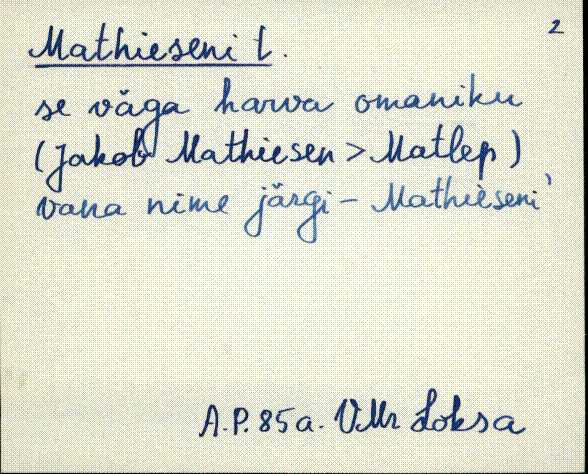 2
Mathieseni t.
se väga harva omaniku
(Jakob Mathiesen > Matlep)
vana nime järgi – Mathièseni'
A.P. 85a. VMr Loksa